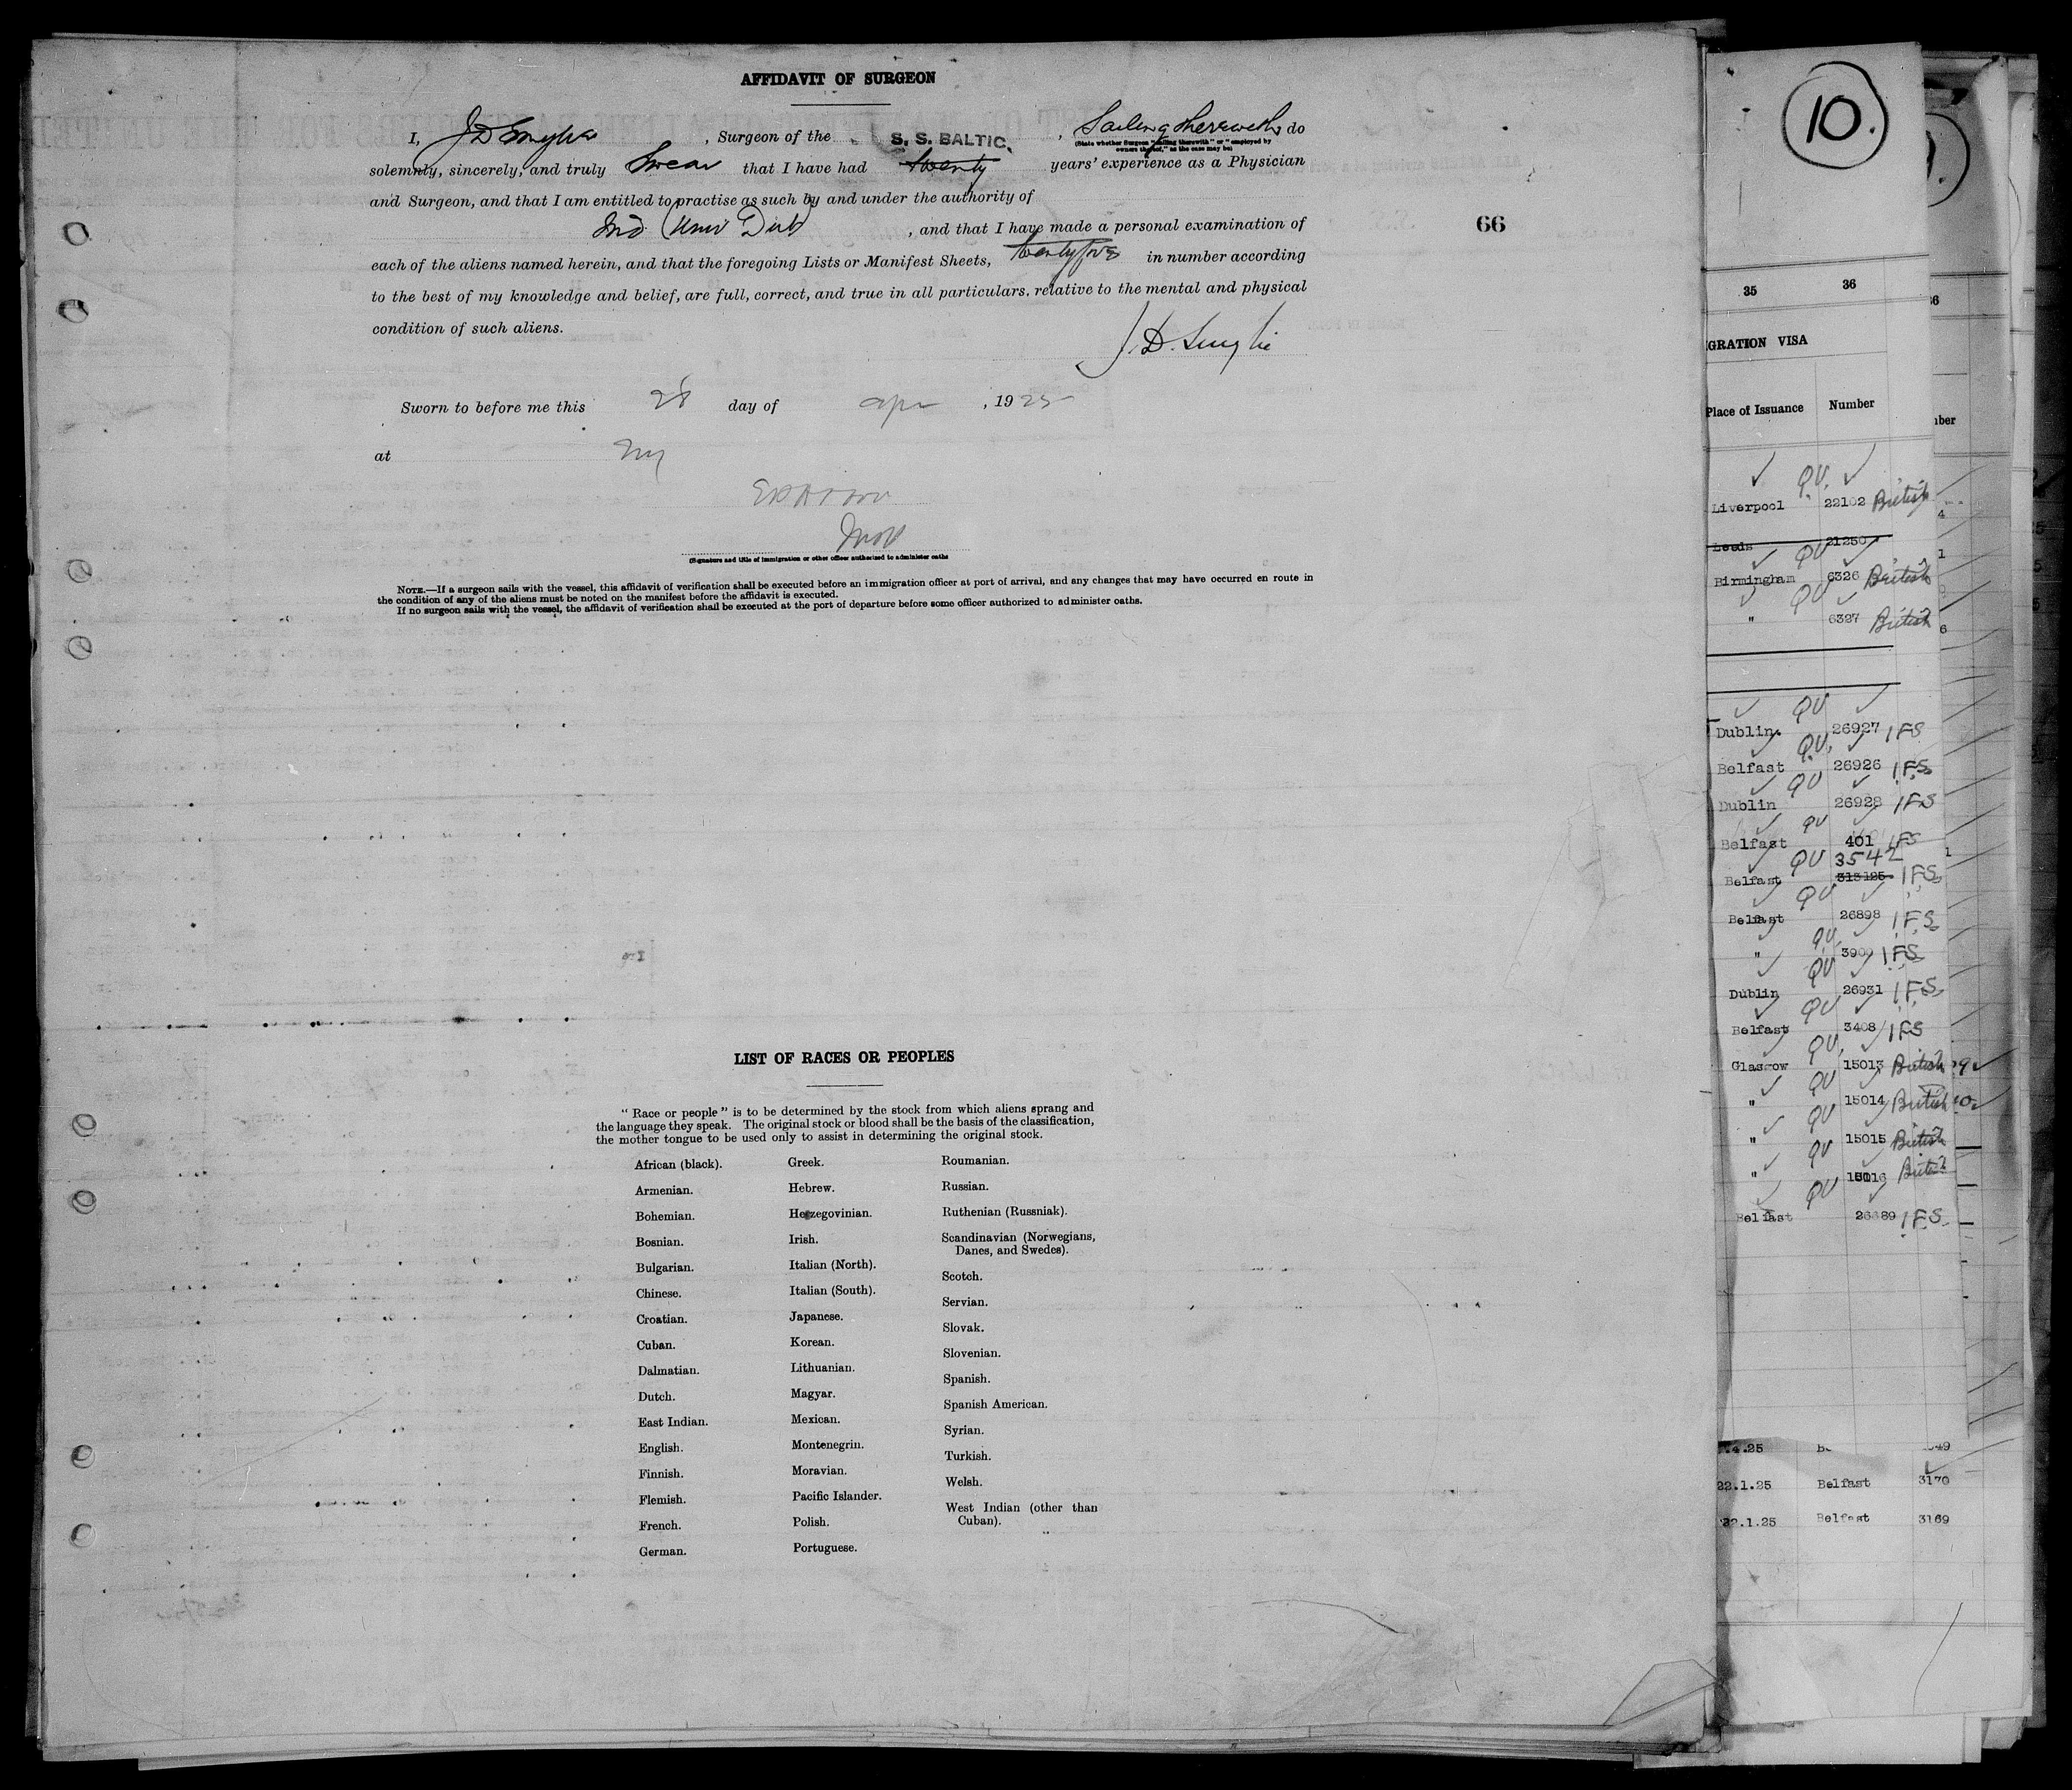 AFFIDAVIT OF SURGEON
I, J D , Surgeon of the S. S. BALTIC, Sailing therewith, do
(State whether Surgeon "sailing therewith" or "employed by
owners thereof," as the case may be)
solemnly, sincerely, and truly Swear that I have had twenty years' experience as a Physician
and Surgeon, and that I am entitled to practise as such by and under the authority of
Univ Dub , and that I have made a personal examination of
66
each of the aliens named herein, and that the foregoing Lists or Manifest Sheets, in number according
to the best of my knowledge and belief, are full, correct, and true in all particulars, relative to the mental and physical
condition of such aliens.
J. D.
Sworn to before me this 28 day of apr , 1925
at NY
(Signature and title of immigration or other officer authorized to administer oaths
NOTE.—If a surgeon sails with the vessel, this affidavit of verification shall be executed before an immigration officer at port of arrival, and any changes that may have occurred en route in
the condition of any of the aliens must be noted on the manifest before the affidavit is executed.
If no surgeon sails with the vessel, the affidavit of verification shall be executed at the port of departure before some officer authorized to administer oaths.
LIST OF RACES OR PEOPLES
"Race or people" is to be determined by the stock from which aliens sprang and
the language they speak. The original stock or blood shall be the basis of the classification,
the mother tongue to be used only to assist in determining the original stock.
African (black).
Armenian.
Bohemian.
Bosnian.
Bulgarian.
Chinese.
Croatian.
Cuban.
Dalmatian.
Dutch.
East Indian.
English.
Finnish.
Flemish.
French.
German.
Greek.
Hebrew.
Herzegovinian.
Irish.
Italian (North).
Italian (South).
Japanese.
Korean.
Lithuanian.
Magyar.
Mexican.
Montenegrin.
Moravian.
Pacific Islander.
Polish.
Portuguese.
Roumanian.
Russian.
Ruthenian (Russniak).
Scandinavian (Norwegians,
Danes, and Swedes).
Scotch.
Servian.
Slovak.
Slovenian.
Spanish.
Spanish American.
Syrian.
Turkish.
Welsh.
West Indian (other than
Cuban).
10.
35 36
GRATION VISA
Place of Issuance Number
QV
Liverpool 22102 British
Leeds 21250
QV
Birmingham 6326 British
QV
" 6327 British
QV
Dublin 26927 IFS
QV
Belfast 26926 I.F.S.
QV
Dublin 26928 IFS
QV
Belfast 401 IFS
QV 3542
Belfast 313125 IFS
QV
Belfast 26898 I.F.S.
QV
" 3909 IFS
QV
Dublin 26931 I.F.S.
QV
Belfast 3408 IFS
QV
Glasgow 15013 British
QV
" 15014 British
QV
" 15015 British
QV
" British
QV
Belfast I.F.S.
.4.25
22.1.25 Belfast 3170
22.1.25 Belfast 3169